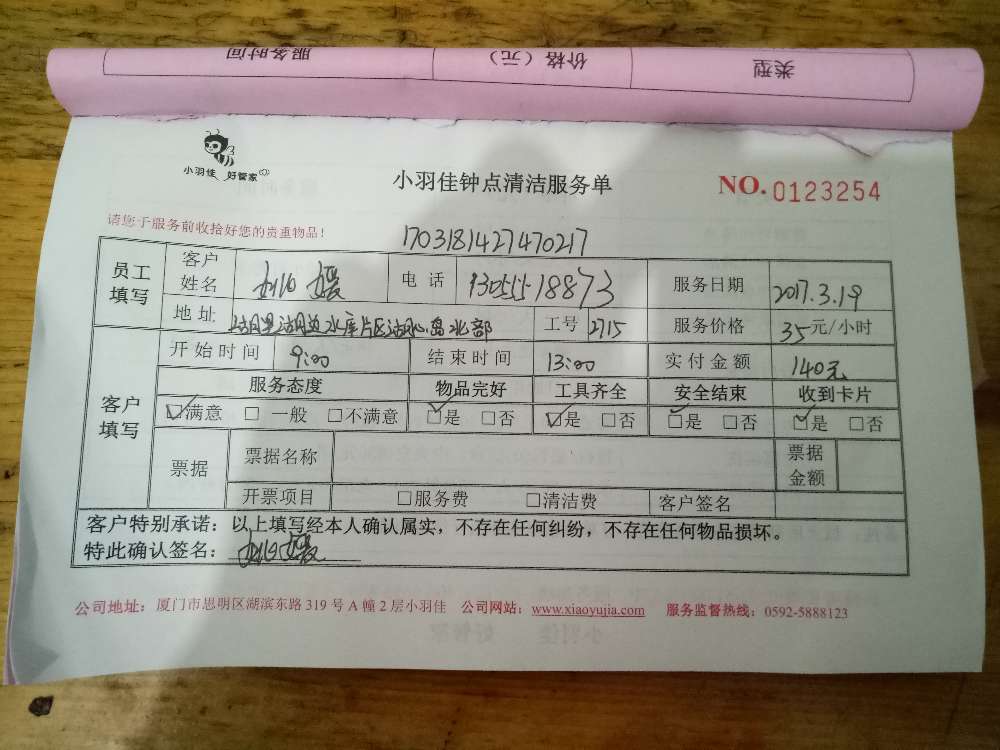 类型 价格（元） 服务时间
小羽佳 好管家
小羽佳钟点清洁服务单 NO. 0123254
请您于服务前收拾好您的贵重物品！
1703181427470217
员工填写 客户姓名 媛 电话 13055518873 服务日期 2017.3.19
地址 湖边水库片区湖心岛北部 工号 2715 服务价格 35元/小时
客户填写 开始时间 9:00 结束时间 13:00 实付金额 140元
服务态度 物品完好 工具齐全 安全结束 收到卡片
☑满意 □一般 □不满意 ☑是 □否 ☑是 □否 ☑是 □否 ☑是 □否
票据 票据名称 票据金额
开票项目 □服务费 □清洁费 客户签名
客户特别承诺：以上填写经本人确认属实，不存在任何纠纷，不存在任何物品损坏。
特此确认签名： 媛
公司地址：厦门市思明区湖滨东路 319 号 A 幢 2 层小羽佳 公司网站：www.xiaoyujia.com 服务监督热线：0592-5888123